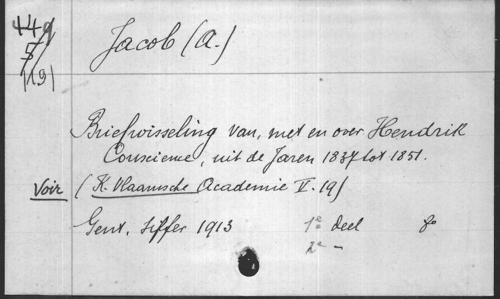 449
5
(19)
Jacob (A.)
Briefwisseling van, met en over Hendrik
Conscience, uit de Jaren 1837 tot 1851.
Voir (K. Vlaamsche Academie V. 19)
Gent, Siffer 1913 1e deel 8o
2e -